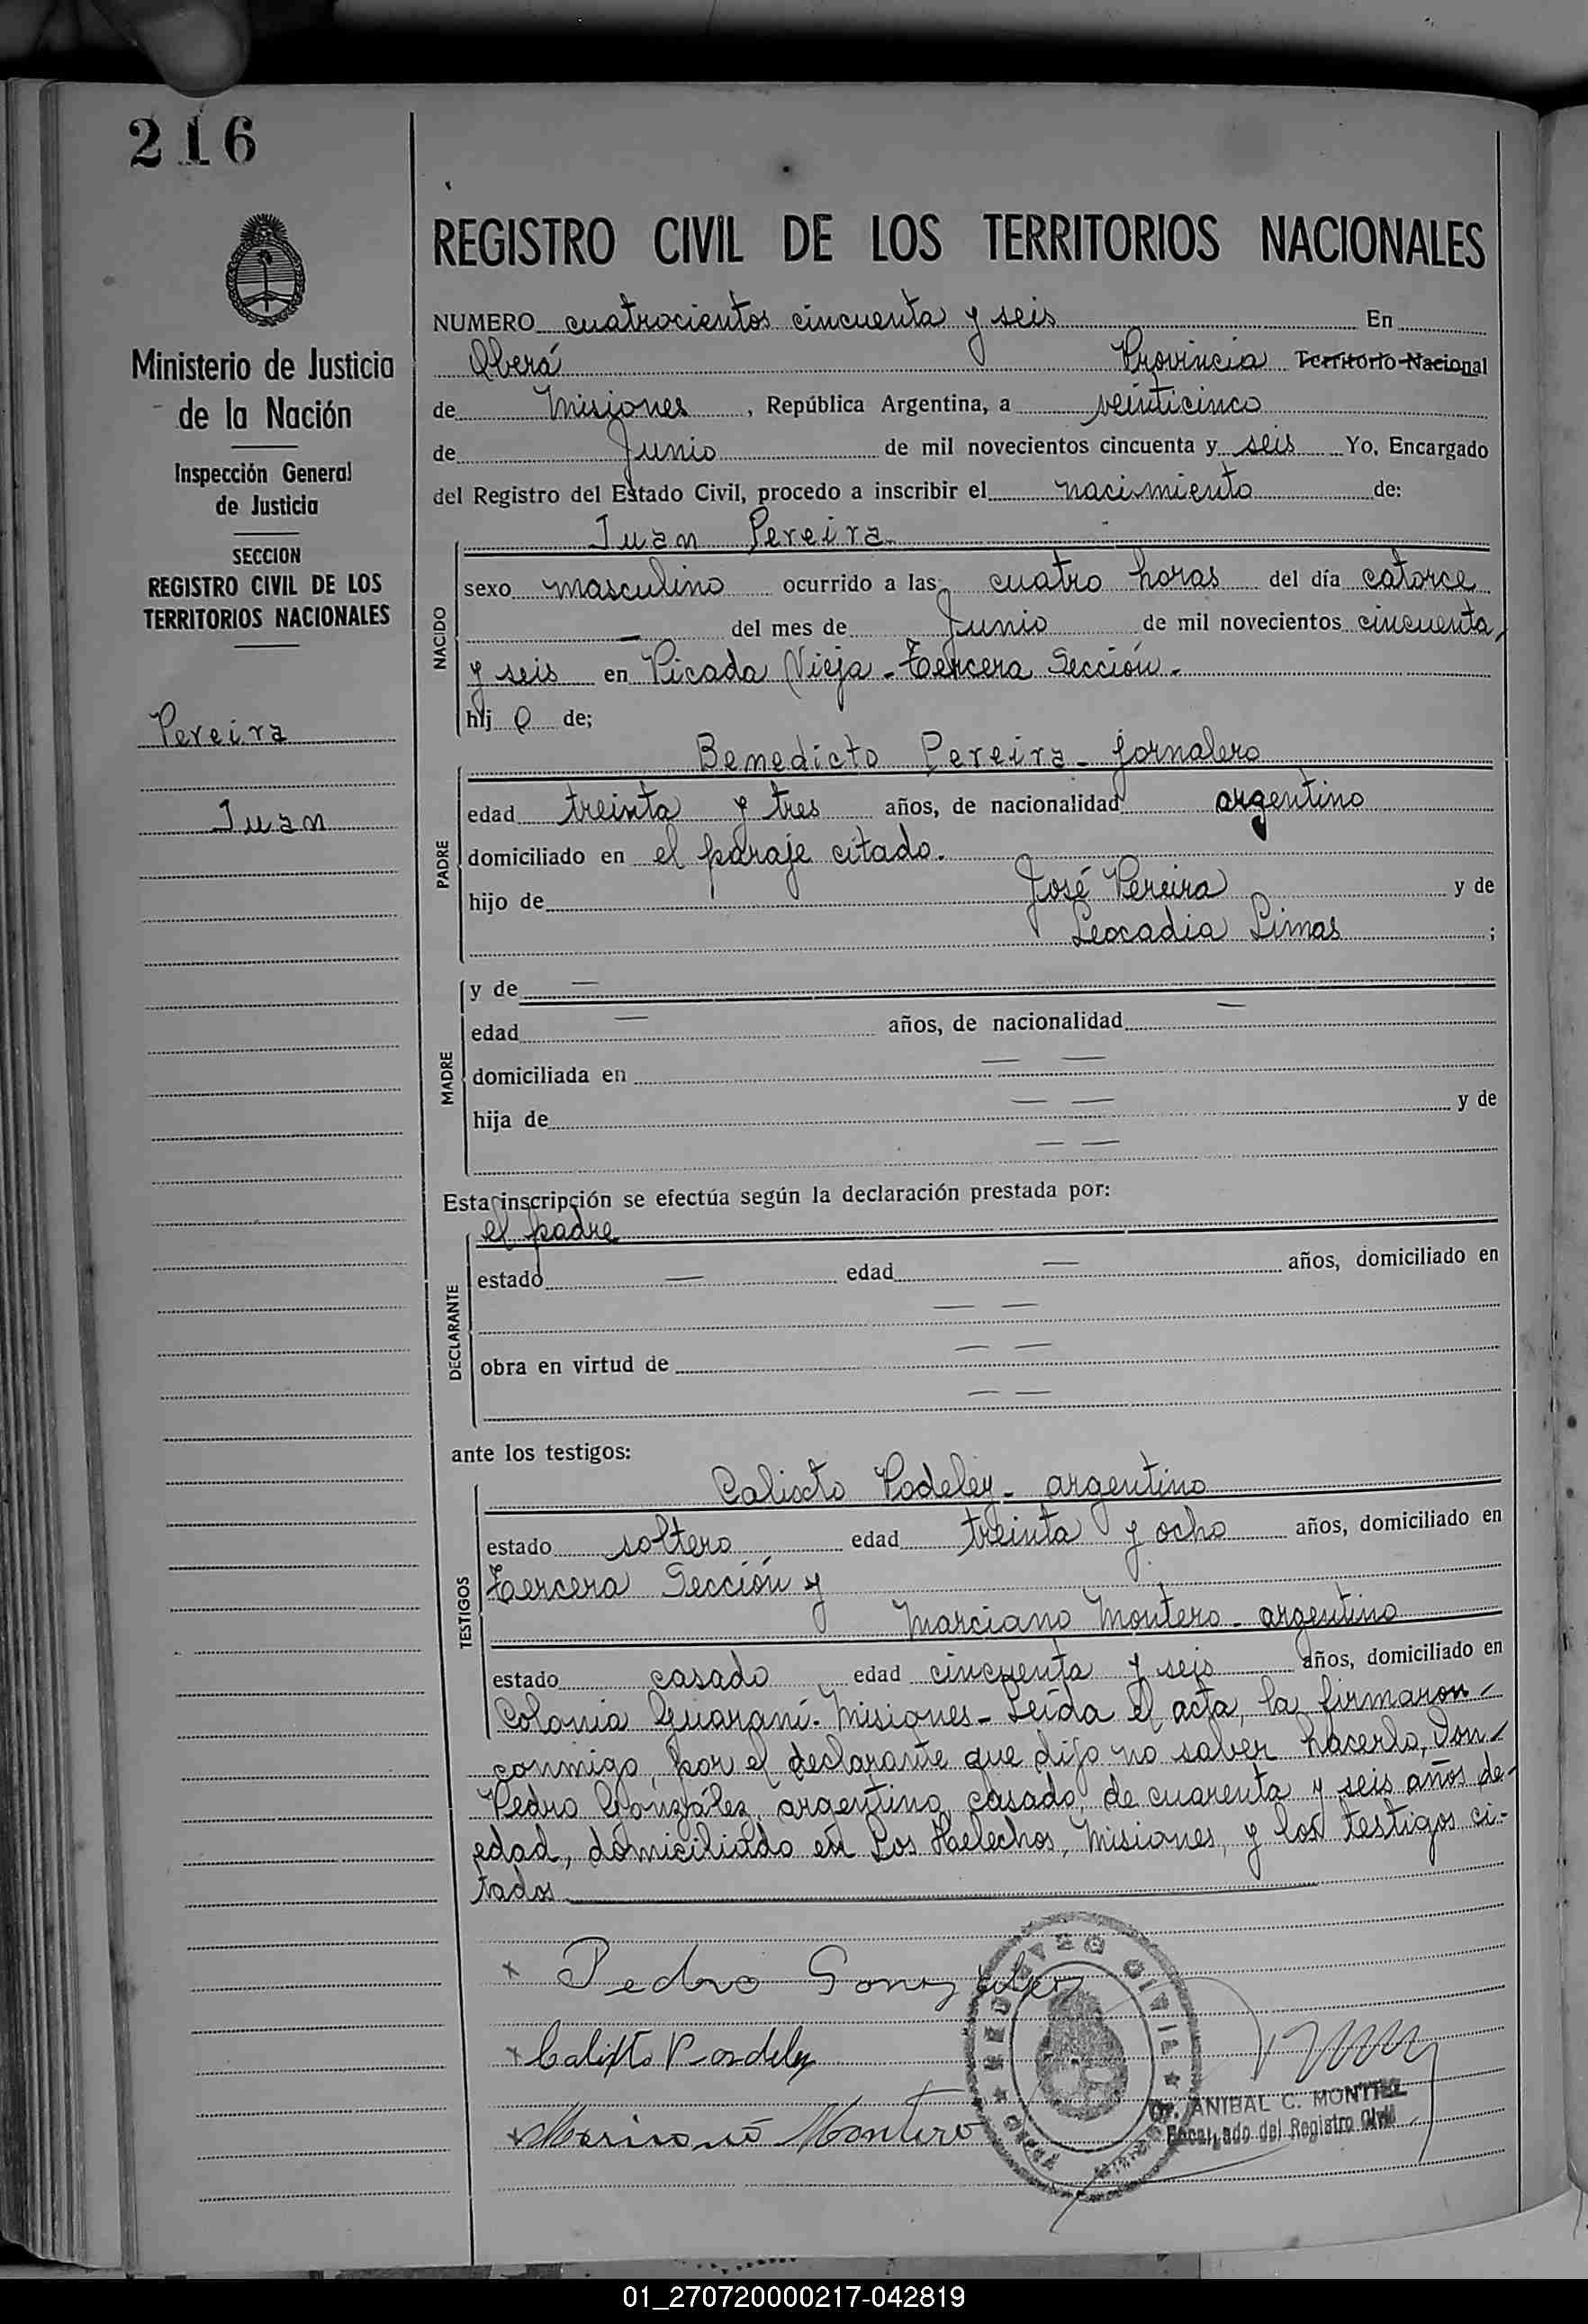 216
Ministerio de Justicia
de la Nación
Inspección General
de Justicia
SECCION
REGISTRO CIVIL DE LOS
TERRITORIOS NACIONALES
Pereira
Juan
REGISTRO CIVIL DE LOS TERRITORIOS NACIONALES
NUMERO cuatrocientos cincuenta y seis En
Oberá Provincia Territorio Nacional
de Misiones, República Argentina, a veinticinco
de Junio de mil novecientos cincuenta y seis Yo, Encargado
del Registro del Estado Civil, procedo a inscribir el nacimiento de:
Juan Pereira
NACIDO
sexo masculino ocurrido a las cuatro horas del día catorce
— del mes de Junio de mil novecientos cincuenta
y seis en Picada Vieja - Tercera Sección.-
hij o de;
Benedicto Pereira - jornalero
PADRE
edad treinta y tres años, de nacionalidad argentino
domiciliado en el paraje citado.
hijo de José Pereira y de
Leocadia Limas ;
MADRE
y de —
edad — años, de nacionalidad —
domiciliada en — —
hija de — — y de
— —
Esta inscripción se efectúa según la declaración prestada por:
el padre
DECLARANTE
estado — edad — años, domiciliado en
— —
obra en virtud de — —
— —
ante los testigos:
Calixto Podeley - argentino
TESTIGOS
estado soltero edad treinta y ocho años, domiciliado en
Tercera Sección y
Marciano Montero - argentino
estado casado edad cincuenta y seis años, domiciliado en
Colonia Guaraní - Misiones - Leída el acta, la firmaron -
conmigo, por el declarante que dijo no saber hacerlo, Don -
Pedro González, argentino, casado, de cuarenta y seis años de -
edad, domiciliado en Los Helechos, Misiones, y los testigos ci-
tados
x Pedro Gonzalez
x Calixto Podeley
x Marciano Montero
REGISTRO CIVIL
Dr. ANIBAL C. MONTIEL
Encargado del Registro Civil
01_270720000217-042819